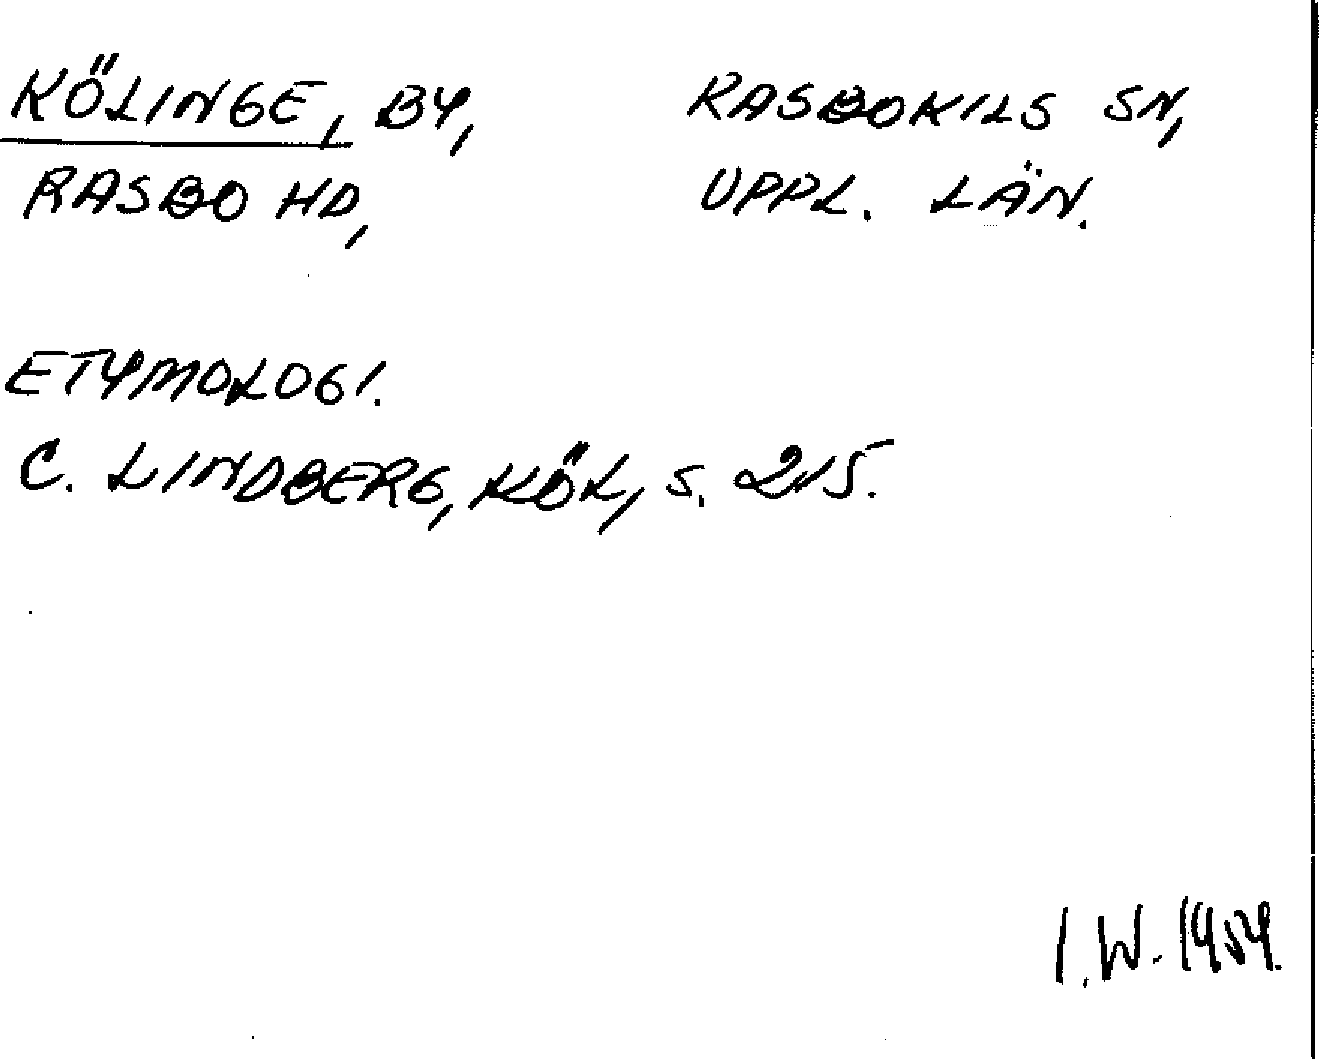 KÖLINGE, BY, RASBOKILS SN,
RASBO HD, UPPL. LÄN.
ETYMOLOGI.
C. LINDBERG, KÖL, S. 215.
I.W. 1954.